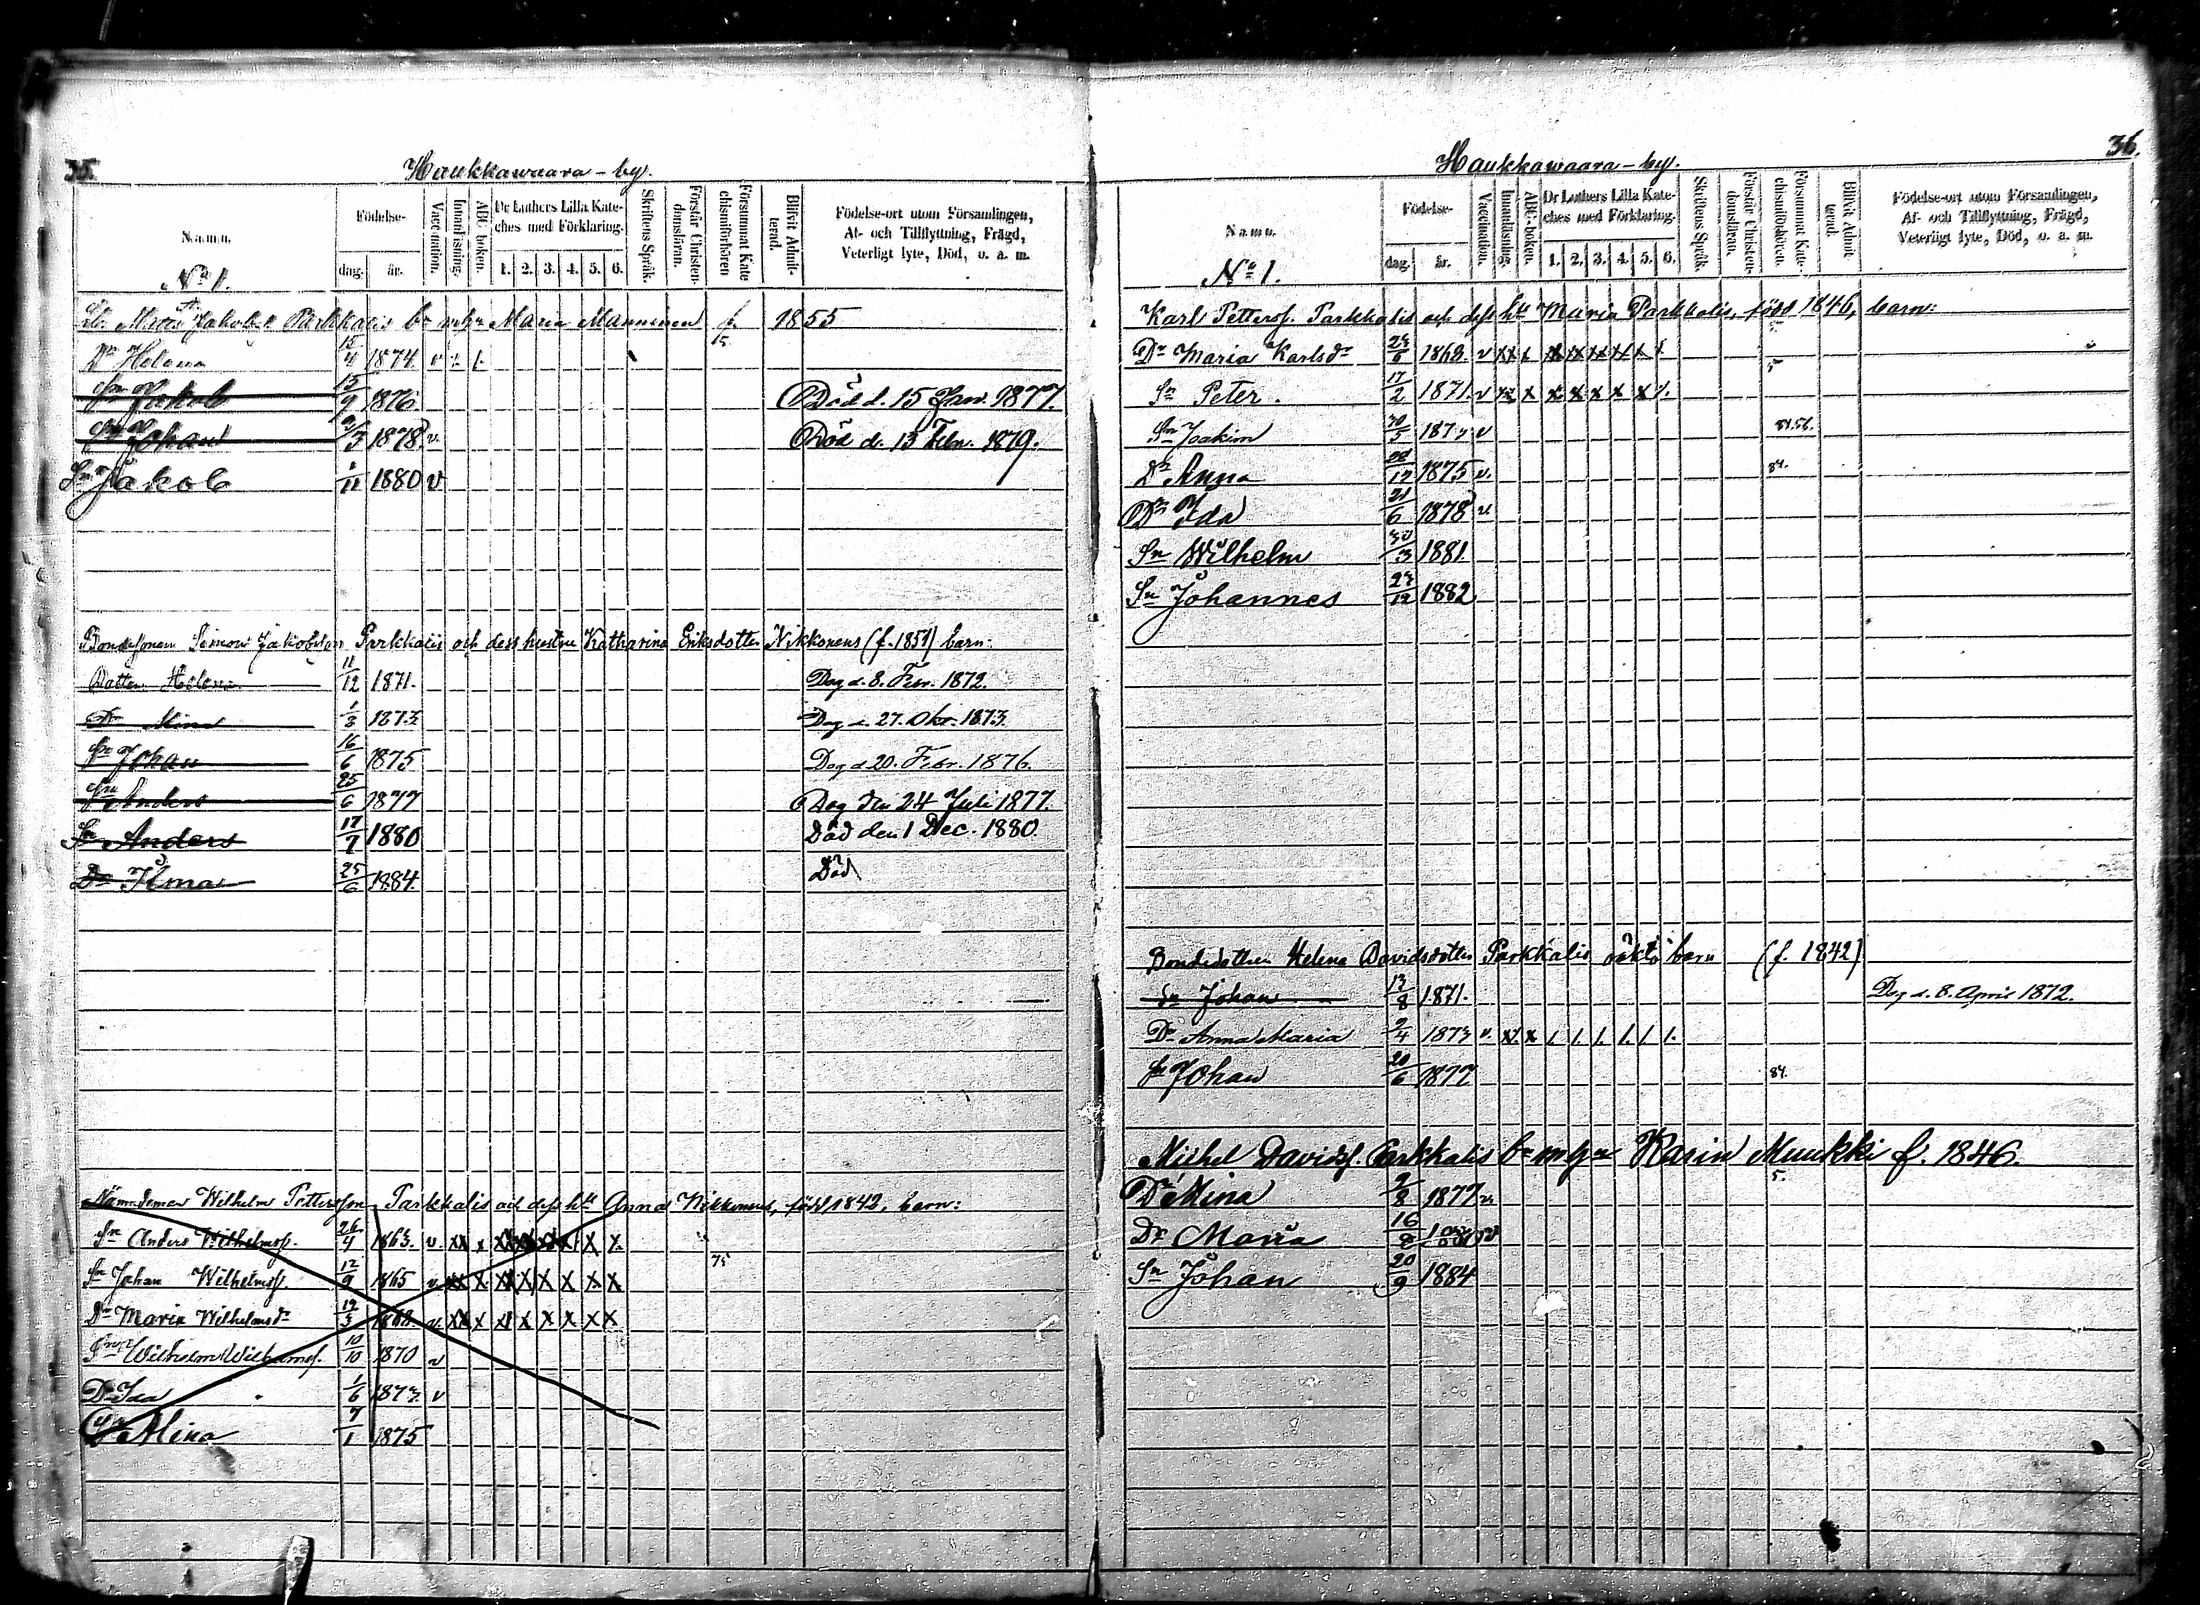 35.
Haukkawaara-by.
Namn.
Födelse-
dag.
år.
Vaccination.
Innanläsning.
ABC-boken.
Dr Luthers Lilla Kate-
ches med Förklaring.
1. 2. 3. 4. 5. 6.
Skriftens Språk.
Förstår Christen-
domsläran.
Försummat Kate
chismiförhören
Blifvit Admit-
terad.
Födelse-ort utom Församlingen,
Af- och Tillflyttning, Frägd,
Veterligt lyte, Död, o. a. m.
No 1.
Matts Jakobss. Parkkalis bn m. hu Maria Manninen f. 1855
15
Dr Helena 15/4 1874 v
Sn Jakob 15/9 1876 Död d. 15 Jan. 1877.
Sn Johan /3 1878 v. Död d. 13 Febr. 1879.
Sn Jakob 1/11 1880 v
Bondesonen Simon Jakobsson Parkkalis och dess hustru Katharina Eriksdotter Nikkonens (f. 1851) barn:
Dotter Helena 11/12 1871. Dog d. 8. Febr. 1872.
Dr Mina 1/3 1873 Dog d. 27. Okt. 1873.
Sn Johan 16/6 1875 Dog d 20. Febr. 1876.
Sn Anders 25/6 1877 Dog den 24 Juli 1877.
Sn Anders 17/7 1880 Död den 1 Dec. 1880.
Dr Ilma 25/6 1884. Död
Nämndeman Wilhelm Pettersson Parkkalis och dess hu Anna Nikkonens, född 1842, barn:
Sn Anders Wilhelmss. 26/4 1863. v xx x x x x x x x
75
Sn Johan Wilhelmss. 12/9 1865 v xx x x x x x x x
Dr Maria Wilhelmsdr 19/3 1868 v. xx x x x x x x x
Sn Wilhelm Wilhelmss. 10/10 1870 v
Dr Ida 1/6 1873 v
Dr Mina 7/1 1875
36.
Haukkawaara-by.
Namn.
Födelse-
dag.
år.
Vaccination.
Innanläsning.
ABC-boken.
Dr Luthers Lilla Kate-
ches med Förklaring.
1. 2. 3. 4. 5. 6.
Skriftens Språk.
Förstår Christen-
domsläran.
Försummat Kate-
chismiförhören.
Blifvit Admit
terad.
Födelse-ort utom Församlingen,
Af- och Tillflyttning, Frägd,
Veterligt lyte, Död, o. a. m.
No 1.
Karl Petterss. Parkkalis och dess hu Maria Parkkalis, född 1846, barn:
5.
Dr Maria Karlsdr /6 1868. v xx x x x x x x x
5
Sn Peter. 17/2 1871. v xx x x x x x x x
Sn Joakim 30/5 1873 v 84.56.
Dr Anna /12 1875 v. 84.
Dr Ida 21/6 1878 v
Sn Wilhelm 30/3 1881.
Sn Johannes 27/12 1882
Bondedottern Helena Davidsdotter Parkkalis oäkta barn (f. 1842)
Sn Johan 13/8 1871. Dog d. 8. April 1872.
Dr Anna Maria 9/4 1873 v. x. x
Sn Johan 20/6 1877 84.
Michel Davidss. Parkkalis bn m. hu Karin Muukki f. 1846.
5.
Dr Mina 2/8 1877 v
Dr Maria 16/8 v
Sn Johan 20/9 1884